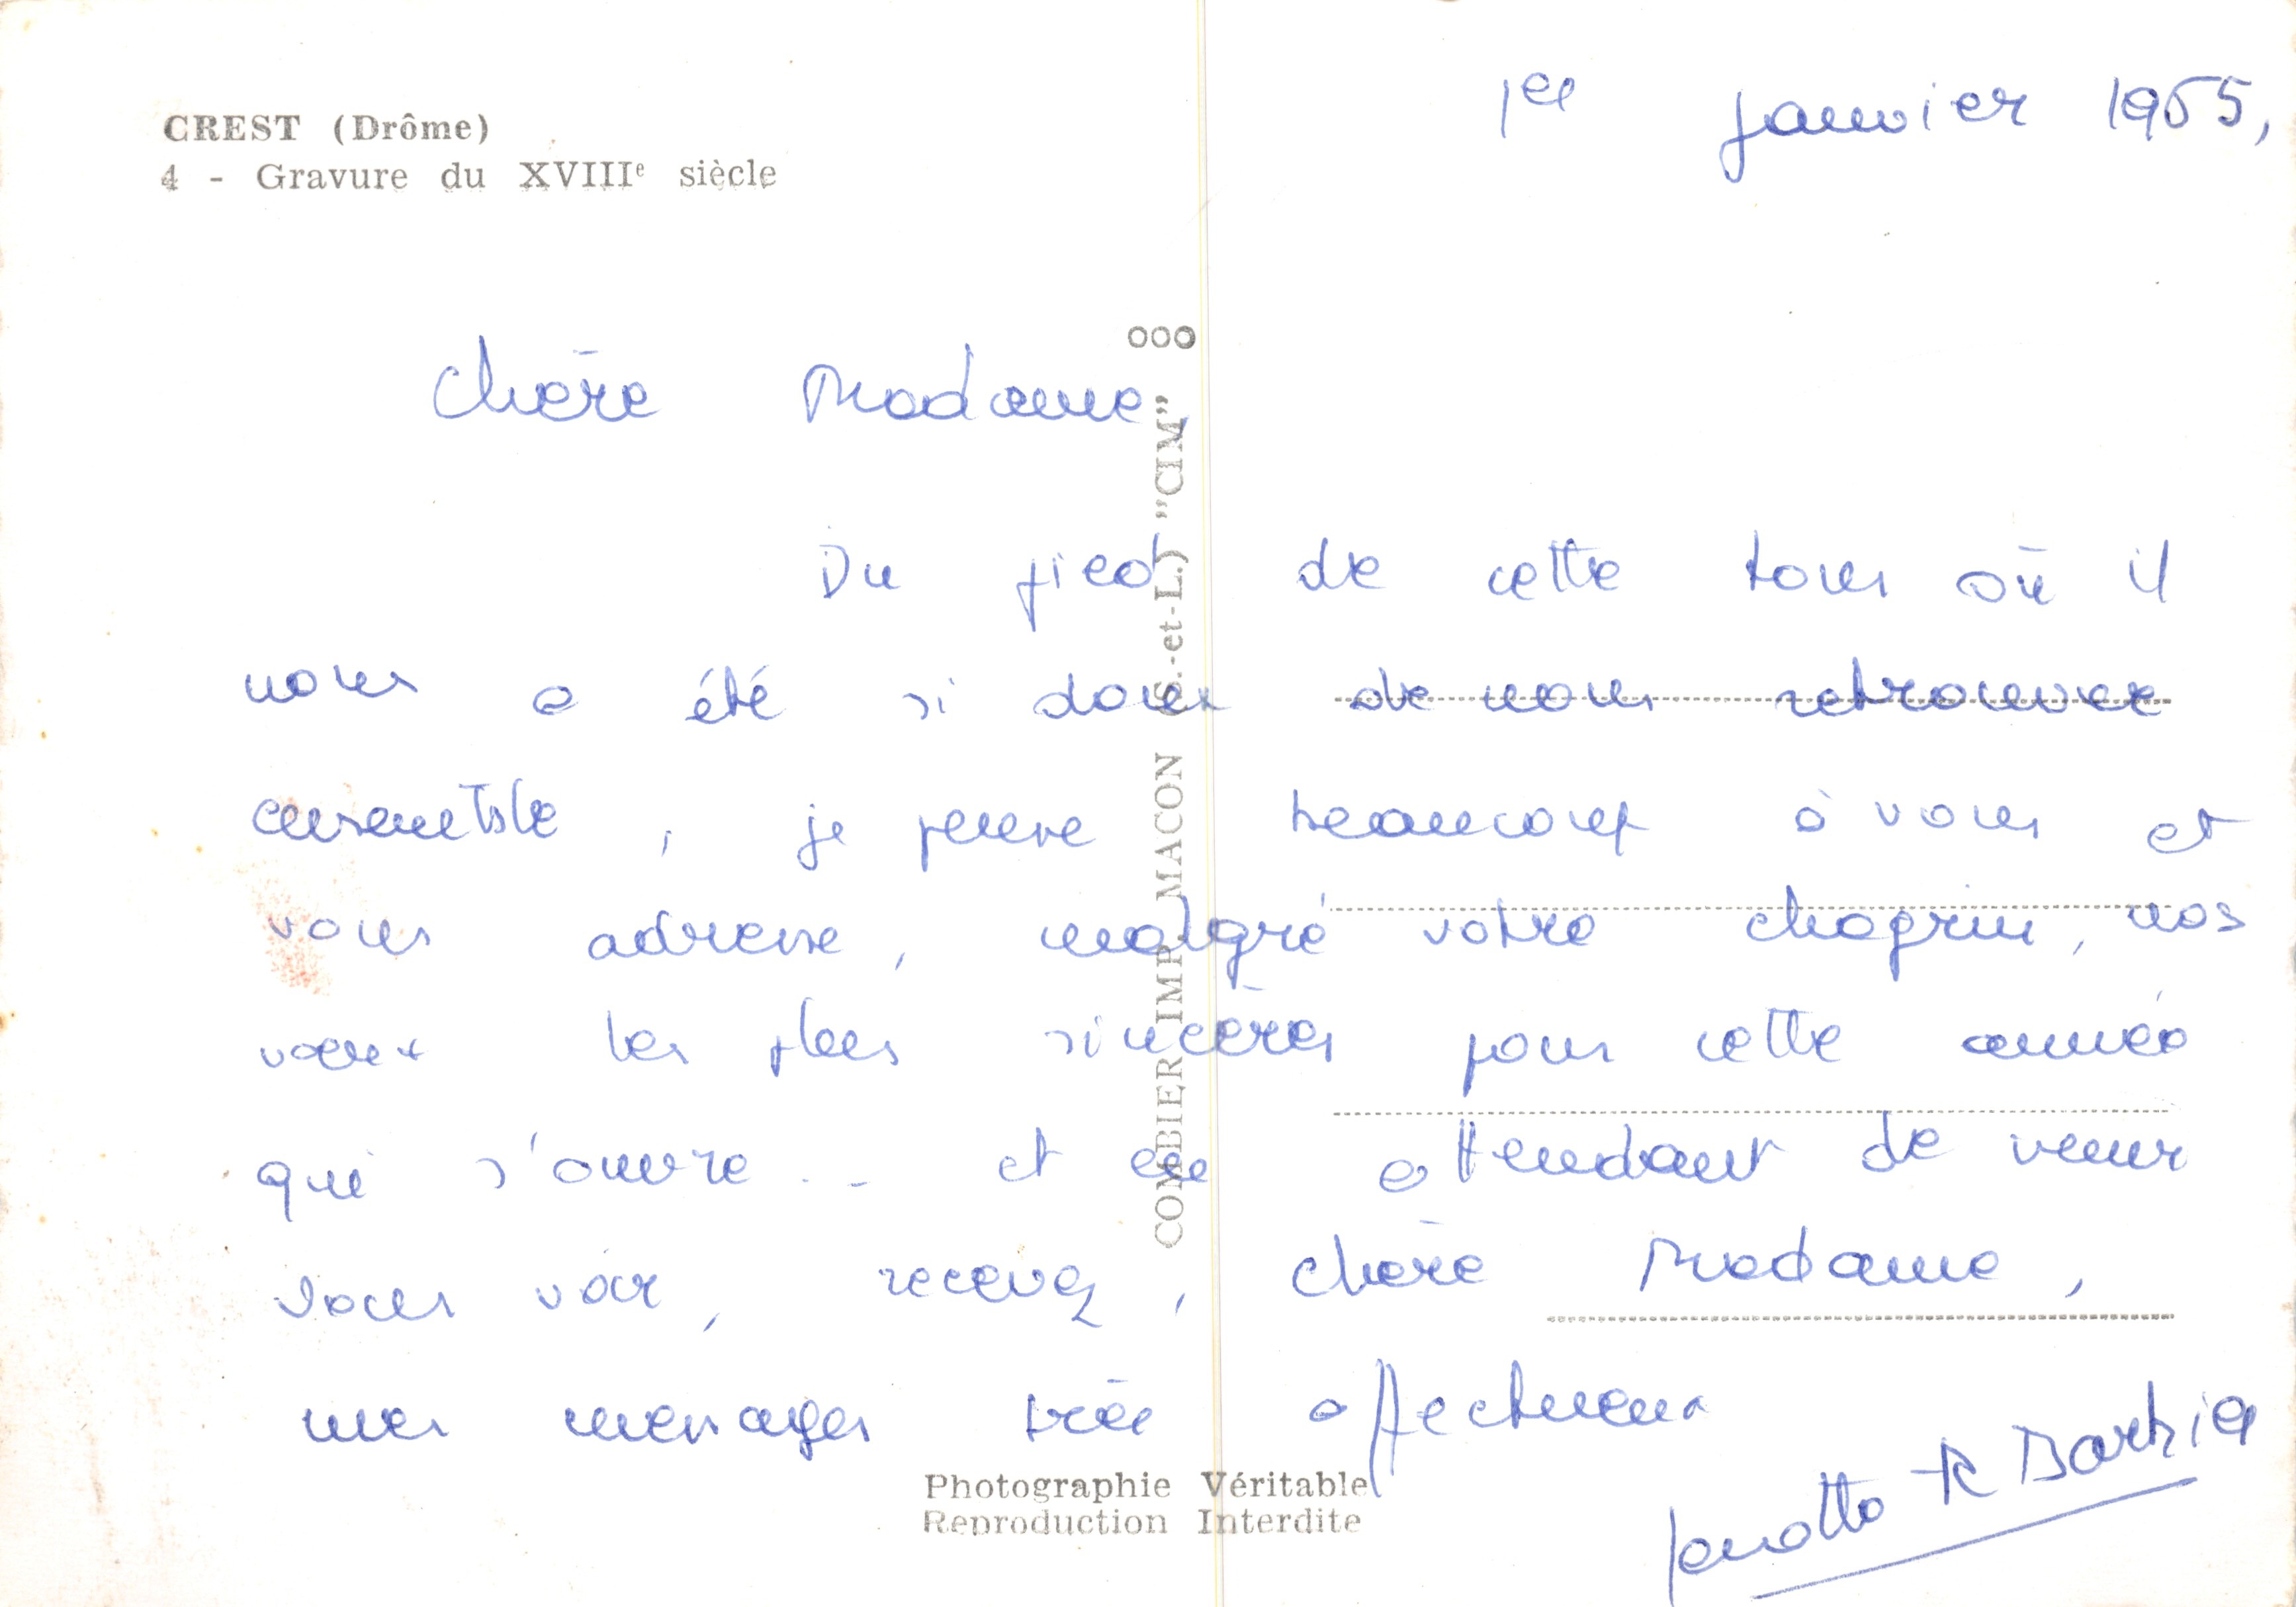 CREST (Drôme)
4 - Gravure du XVIIIᵉ siècle
1er Janvier 1965,
Chère Madame,
Du pied de cette tour où il
nous a été si doux de nous retrouver
ensemble, je pense beaucoup à vous et
vous adresse, malgré votre chagrin, nos
voeux les plus sincères pour cette année
qui s'ouvre... et en attendant de venir
vous voir, recevez, chère Madame,
mes messages très affectueux
R Barbier
COMBIER IMP. MACON (S.-et-L.) "CIM"
Photographie Véritable
Reproduction Interdite